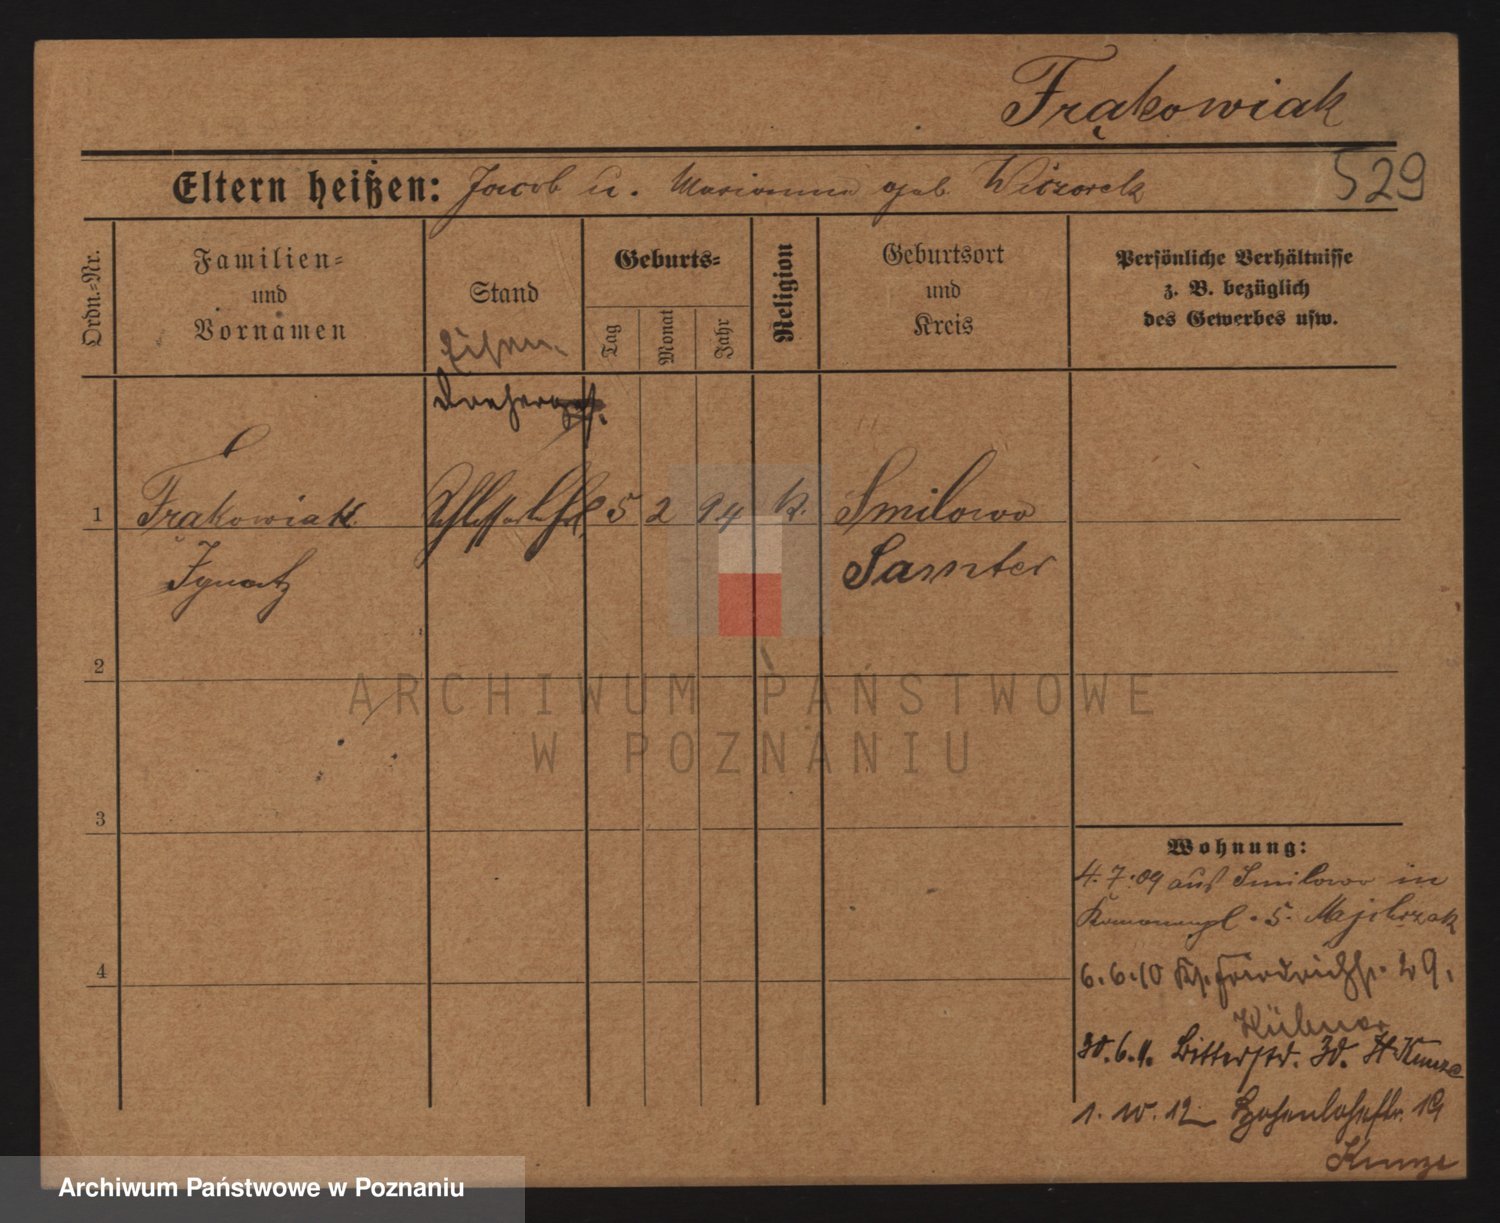 Frąkowiak
Eltern heißen: Jacob u. Marianna geb Wiczorek
529
Ordn.=Nr.
Familien=
und
Vornamen
Stand
Geburts=
Tag
Monat
Jahr
Religion
Geburtsort
und
Kreis
Persönliche Verhältnisse
z. B. bezüglich
des Gewerbes usw.
Eisen-
Dreher
1 Frąkowiak 5 2 94 k. Smilowo
Ignatz Samter
2
3
4
Wohnung:
4.7.09 aus Smilowo in
5. Majchrzak
6.6.10 Friedrichstr. 29.
Hübner
30.6.11. Ritterstr. 30. Kunze
1. 10. 12 Hohenlohestr. 19
Kunze
ARCHIWUM PAŃSTWOWE
W POZNANIU
Archiwum Państwowe w Poznaniu